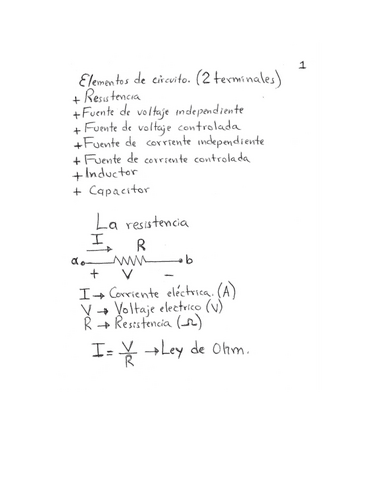 1
Elementos de circuito. (2 terminales)
+ Resistencia
+ Fuente de voltaje independiente
+ Fuente de voltaje controlada
+ Fuente de corriente independiente
+ Fuente de corriente controlada
+ Inductor
+ Capacitor
La resistencia
I R
a b
+ V -
I → Corriente eléctrica. (A)
V → Voltaje electrico (V)
R → Resistencia (Ω)
I = V/R → Ley de Ohm.